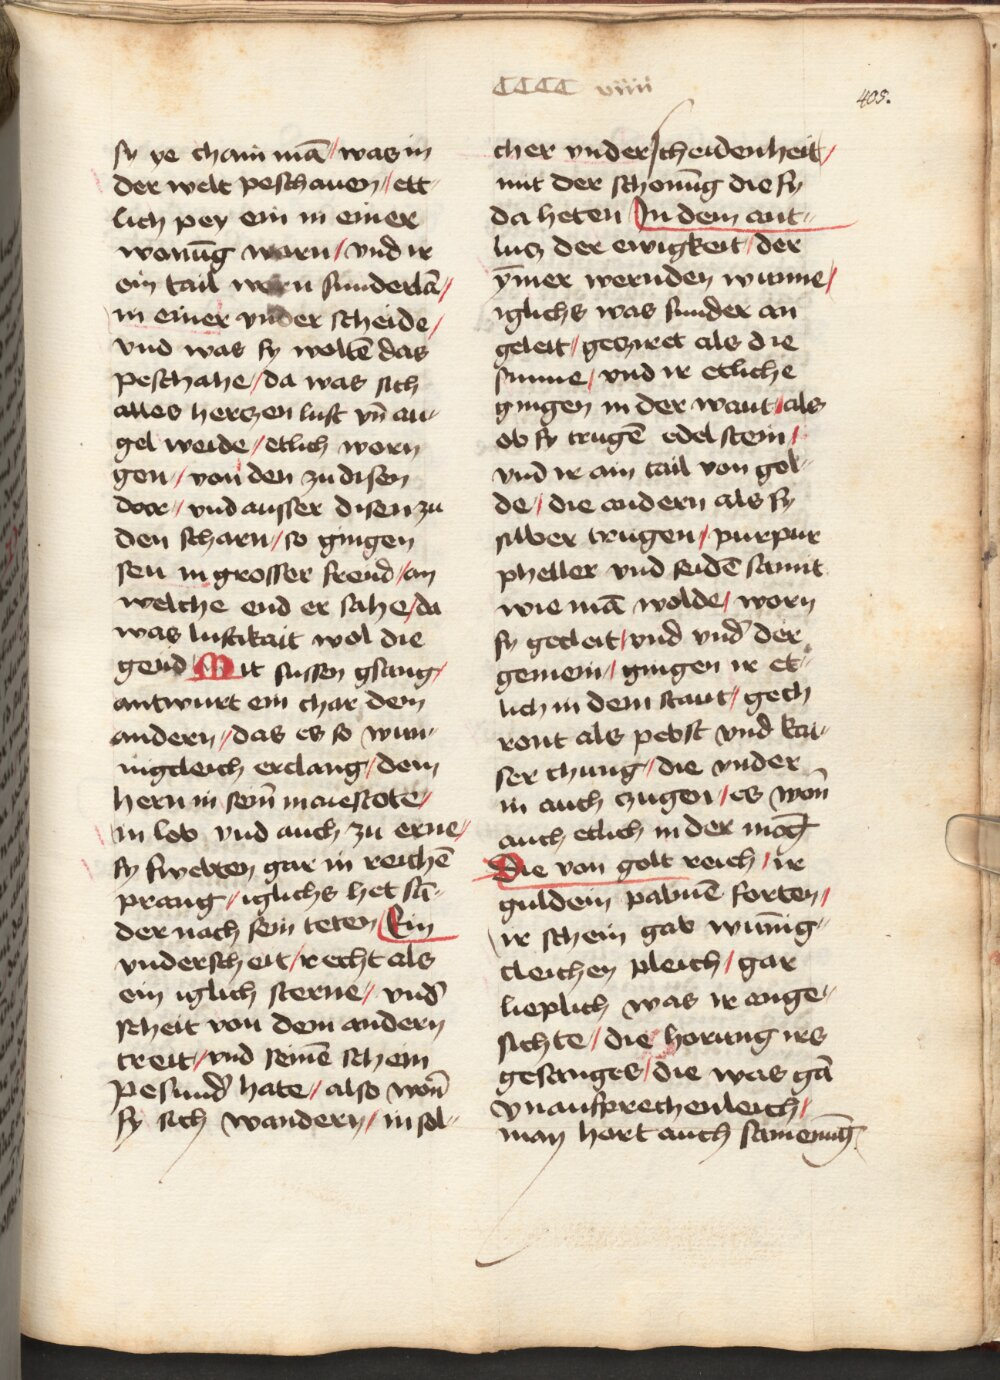 cccc viiii
405.
sy ye chain mā / was in
der welt peschauen / ett-
lich pey ein in einer
wonūg warn / vnd ir
ein tail warn sunderlā /
in einer vnder scheide /
vnd was sy woltē das
peschahe / da was sich
alles herczen lust vn̄ au-
gel weide / etlich worn
gen / von den zu disen
door / vnd ausser disen zu
den scharn / so gingen
sen in grosser freud / an
welche end er sahe / da
was lustikait wol die
gend Mit sussen gsang /
antwurt ein char dem
andern / das es so wun-
nigcleich erclang / dem
hern in sein̄ maiestote /
in lob vnd auch zu erne /
sy swebten gar in reichē
prang / iglichs het sū-
der nach sein teten Ein
vnderscheit / recht als
ein iglich sterne / vnd̄
scheit von dem andern
treit / vnd seinē schein
pesund̄ hate / also won̄
sy sich wandern / in sol-
cher vnderscheidenheit /
mit der schonūg die sy
da heten In dem ant-
lucz der ewigkeit / der
ȳmer wernden wunne /
iglichs was sunder an
geleit / gecziret als die
sunne / vnd ir etliche
gingen in der waut / als
ob sy trugē edel stein /
vnd ir ain tail von gol-
de / die andern als sy
silber trugen / purpur
pheller vnd seidē samit
wie mā wolde / worn
sy gecleit / vnd vnd̄ der
gemein / gingen ir et-
lich in dem staut / gech
ront als pebst vnd kai-
ser chung / die vnder
in auch czugen / es won̄
auch etlich in der moḡ
Die von golt reich / ir
guldein palmē forten /
ir schein gab wun̄ig-
cleichen pleich / gar
lieplich was ir ange-
sichte / die horung irs
gesanges / die was gā
vnausprechenleich /
man hort auch samenūg